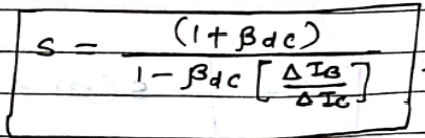 S = (1 + βdc) / 1 - βdc [ΔIB / ΔIC]